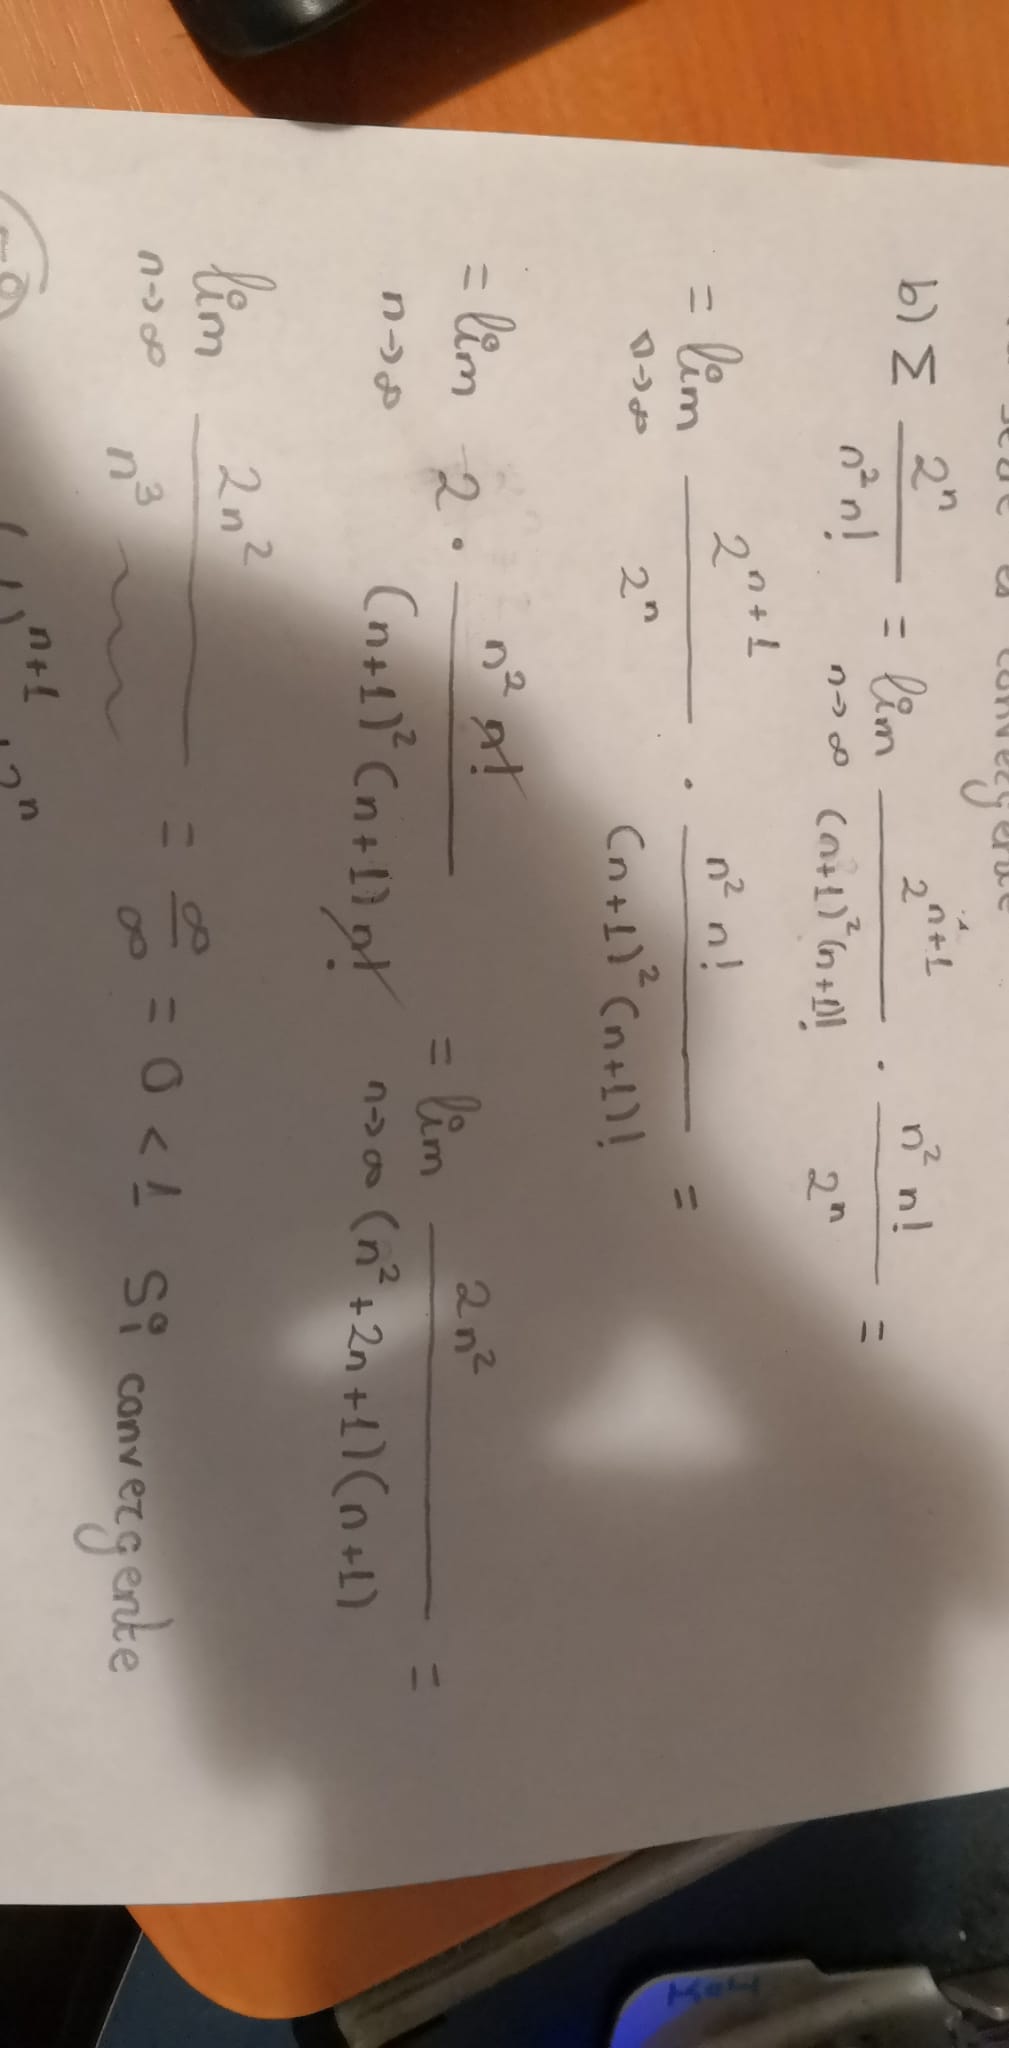 convergente
b) Σ 2^n / (n² n!) = lim n→∞ 2^(n+1) / ((n+1)² (n+1)!) · n² n! / 2^n =
= lim n→∞ 2^(n+1) / 2^n · n² n! / ((n+1)² (n+1)!) =
= lim n→∞ 2 · n² n! / ((n+1)² (n+1) n!) = lim n→∞ 2n² / ((n²+2n+1)(n+1)) =
lim n→∞ 2n² / n³ = ∞/∞ = 0 < 1 Si convergente
n+1 n